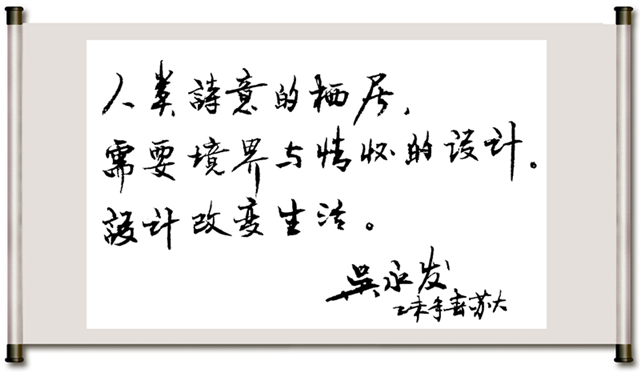 人类詩意的栖居,
需要境界与情怀的设计。
設计改变生活。
吴永发
乙未年春苏大